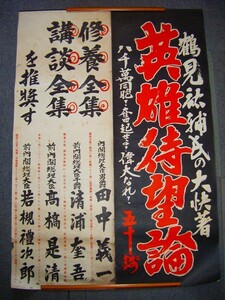 鶴見祐輔氏の大快著
英雄待望論
八千萬同胞を奮起せしむ 偉大なれ！
五十銭
修養全集
講談全集
を推奨す
内閣総理大臣男爵
田中義一
前内閣総理大臣子爵
清浦奎吾
前内閣総理大臣
高橋是清
前内閣総理大臣
若槻禮次郎